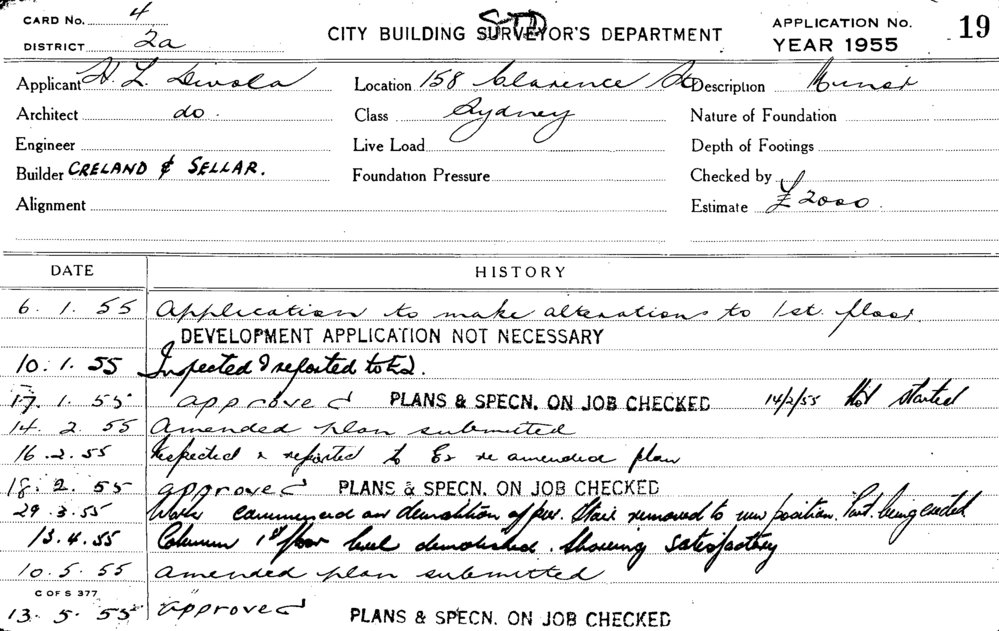 CARD No. 4
DISTRICT 2a
CITY BUILDING SURVEYOR'S DEPARTMENT
APPLICATION No. 19
YEAR 1955
Applicant H. L. Divola Location 158 Clarence St Description Minor
Architect do. Class Sydney Nature of Foundation
Engineer Live Load Depth of Footings
Builder CRELAND & SELLAR. Foundation Pressure Checked by
Alignment Estimate £2000.
DATE HISTORY
6. 1. 55 Application to make alterations to 1st. floor.
DEVELOPMENT APPLICATION NOT NECESSARY
10. 1. 55 Inspected & reported to
17. 1. 55 approved PLANS & SPECN. ON JOB CHECKED 14/2/55 Not Started
14. 2. 55 Amended plan submitted
16. 2. 55 Inspected & reported to re amended plan
18. 2. 55 approved PLANS & SPECN. ON JOB CHECKED
29. 3. 55 Work commenced on demolition of Stair removed to new position. being
13. 4. 55 Column 1st floor level demolished. Showing satisfactory
10. 5. 55 amended plan submitted
C OF S 377
13. 5. 55 approved PLANS & SPECN. ON JOB CHECKED